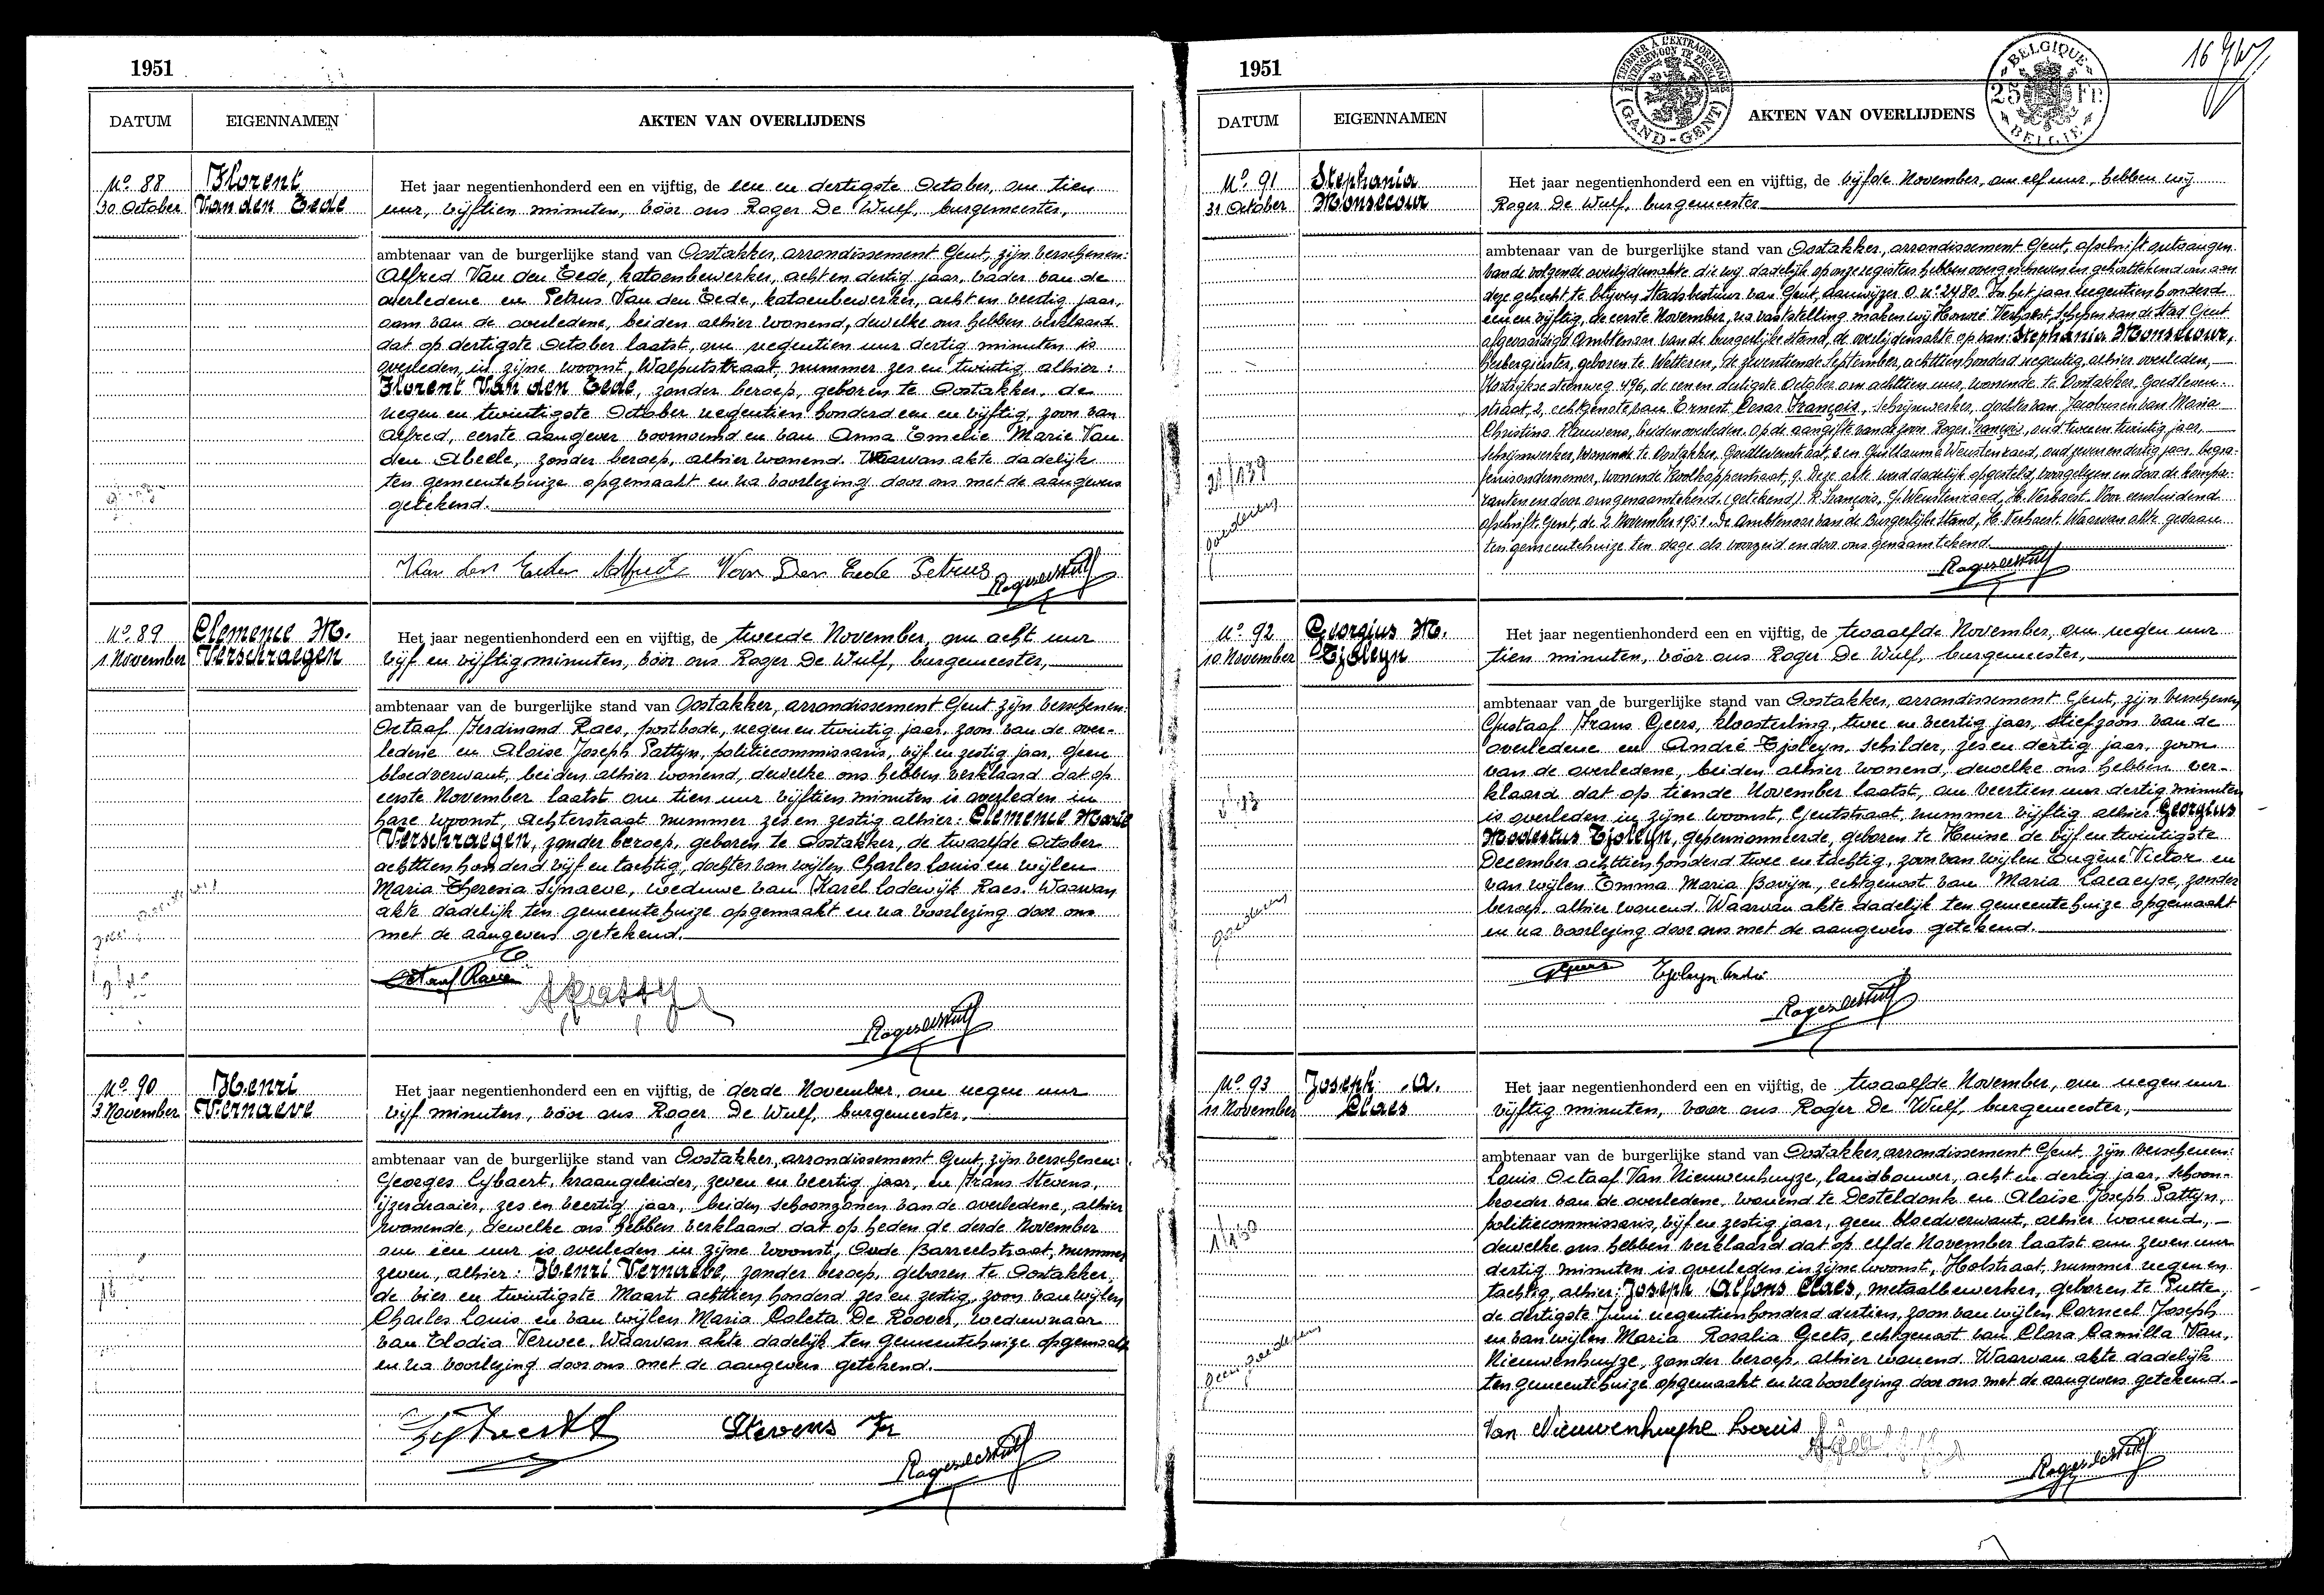 1951
DATUM EIGENNAMEN AKTEN VAN OVERLIJDENS
No. 88 Florent
30 October Van den Eede
Het jaar negentienhonderd een en vijftig, de een en dertigste October, om tien
uur, vijftien minuten, vóór ons Roger De Wulf, burgemeester,
ambtenaar van de burgerlijke stand van Oostakker, arrondissement Gent, zijn verschenen:
Alfred Van den Eede, katoenbewerker, acht en dertig jaar, vader van de
overledene en Petrus Van den Eede, katoenbewerker, acht en veertig jaar,
oom van de overledene, beiden alhier wonend, dewelke ons hebben verklaard
dat op dertigste October laatst, om negentien uur dertig minuten is
overleden, in zijne woonst, Walputstraat, nummer zes en twintig, alhier:
Florent Van den Eede, zonder beroep, geboren te Oostakker, de
negen en twintigste October negentien honderd een en vijftig, zoon van
Alfred, eerste aangever voornoemd en van Anna Emelie Marie Van
den Abeele, zonder beroep, alhier wonend. Waarvan akte dadelijk
ten gemeentehuize opgemaakt en na voorlezing door ons met de aangevers
getekend.
Van den Eede Alfred Van Den Eede Petrus
Roger De Wulf
No. 89 Clemence M.
1 November Verschraegen
Het jaar negentienhonderd een en vijftig, de tweede November, om acht uur
vijf en vijftig minuten, vóór ons Roger De Wulf, burgemeester,
ambtenaar van de burgerlijke stand van Oostakker, arrondissement Gent, zijn verschenen:
Octaaf Ferdinand Raes, postbode, negen en twintig jaar, zoon van de over-
ledene en Aloise Joseph Pattyn, politiecommissaris, vijf en zestig jaar, geen
bloedverwant, beiden alhier wonend, dewelke ons hebben verklaard dat op
eerste November laatst om tien uur vijftien minuten is overleden in
hare woonst, Achterstraat nummer zes en zestig alhier: Clemence Marie
Verschraegen, zonder beroep, geboren te Oostakker, de twaalfde October
achttien honderd vijf en tachtig, dochter van wijlen Charles Louis en wijlen
Maria Theresia Synaeve, weduwe van Karel Lodewijk Raes. Waarvan
akte dadelijk ten gemeentehuize opgemaakt en na voorlezing door ons
met de aangevers getekend.
Octaaf Raes
Roger De Wulf
No. 90 Henri
3 November Vernaeve
Het jaar negentienhonderd een en vijftig, de derde November, om negen uur
vijf minuten, vóór ons Roger De Wulf, burgemeester,
ambtenaar van de burgerlijke stand van Oostakker, arrondissement Gent, zijn verschenen:
Georges Eybaert, kraangeleider, zeven en veertig jaar, en Frans Stevens,
ijzerdraaier, zes en veertig jaar, beiden schoonzonen van de overledene, alhier
wonende, dewelke ons hebben verklaard dat op heden de derde November
om één uur is overleden in zijne woonst, Oude Barreelstraat, nummer
zeven, alhier: Henri Vernaeve, zonder beroep, geboren te Oostakker,
de vier en twintigste Maart achttien honderd zes en zestig, zoon van wijlen
Charles Louis en van wijlen Maria Coleta De Roover, weduwnaar
van Elodia Verwee. Waarvan akte dadelijk ten gemeentehuize opgemaakt
en na voorlezing door ons met de aangevers getekend.
Eybaert Stevens Fr
Roger De Wulf
1951
TIMBRE A L'EXTRAORDINAIRE
GAND-GENT
BELGIQUE
25 Fr.
BELGIE
DATUM EIGENNAMEN AKTEN VAN OVERLIJDENS
No. 91 Stephania
31 October Monsecour
Het jaar negentienhonderd een en vijftig, de vijfde November, om elf uur, hebben wij
Roger De Wulf, burgemeester
ambtenaar van de burgerlijke stand van Oostakker, arrondissement Gent, afschrift ontvangen
van de volgende overlijdensakte die wij dadelijk op onze registers hebben overgeschreven en gehandtekend om aan
deze gehecht te blijven Stadsbestuur van Gent, Aanwijzer O no. 2480. In het jaar negentien honderd
een en vijftig, de eerste November, na vaststelling maken wij Honoré Verhaest, Schepen van de Stad Gent
afgevaardigd Ambtenaar van de burgerlijke Stand, de overlijdensakte op van: Stephania Monsecour,
herbergierster, geboren te Wetteren, de zeventiende September, achttien honderd negentig, alhier overleden,
Kortrijkse steenweg 496, de een en dertigste October om achttien uur, wonende te Oostakker, Goedleven-
straat, 2, echtgenote van Ernest Cesar François, schrijnwerker, dochter van Jacobus en van Maria
Christina Rauwens, beiden overleden. Op de aangifte van de zoon Roger François, oud twee en twintig jaar,
schrijnwerker, wonende te Oostakker, Goedlevenstraat, 2 en Guillaume Weustenraed, oud zeven en dertig jaar, begra-
fenisondernemer, wonende Koolkapperstraat, 9. Deze akte werd dadelijk opgesteld, voorgelezen en door de kompa-
ranten en door ons genaamtekend. (getekend) R. François, G. Weustenraed, H. Verhaest. Voor eensluidend
afschrift. Gent, de 2 November 1951. De Ambtenaar van de Burgerlijke Stand, H. Verhaest. Waarvan akte gedaan
ten gemeentehuize ten dage als voorzeid en door ons genaamtekend.
Roger De Wulf
No. 92 Georgius M.
10 November Tjoleyn
Het jaar negentienhonderd een en vijftig, de twaalfde November, om negen uur
tien minuten, vóór ons Roger De Wulf, burgemeester,
ambtenaar van de burgerlijke stand van Oostakker, arrondissement Gent, zijn verschenen
Gustaaf Frans Geers, kloosterling, twee en veertig jaar, stiefzoon van de
overledene en André Tjoleyn, schilder, zes en dertig jaar, zoon
van de overledene, beiden alhier wonend, dewelke ons hebben ver-
klaard dat op tiende November laatst, om veertien uur dertig minuten
is overleden in zijne woonst, Gentstraat, nummer vijftig alhier Georgius
Modestus Tjoleyn, gepensionneerde, geboren te Huise de vijf en twintigste
December achttien honderd twee en tachtig, zoon van wijlen Eugène Victor en
van wijlen Emma Maria Bovijn, echtgenoot van Maria Lacaeyse, zonder
beroep, alhier wonend. Waarvan akte dadelijk ten gemeentehuize opgemaakt
en na voorlezing door ons met de aangevers getekend.
Geers Tjoleyn André
Roger De Wulf
No. 93 Joseph A.
11 November Claes
Het jaar negentienhonderd een en vijftig, de twaalfde November, om negen uur
vijftig minuten, voor ons Roger De Wulf, burgemeester,
ambtenaar van de burgerlijke stand van Oostakker, arrondissement Gent, zijn verschenen:
Louis Octaaf Van Nieuwenhuyze, landbouwer, acht en dertig jaar, schoon-
broeder van de overledene, wonend te Desteldonk en Aloise Joseph Pattyn,
politiecommissaris, vijf en zestig jaar, geen bloedverwant, alhier wonend,
dewelke ons hebben verklaard dat op elfde November laatst om zeven uur
dertig minuten is overleden in zijne woonst, Holstraat, nummer negen en
tachtig, alhier: Joseph Alfons Claes, metaalbewerker, geboren te Putte,
de dertigste Juni negentienhonderd dertien, zoon van wijlen Corneel Joseph
en van wijlen Maria Rosalia Geets, echtgenoot van Clara Camilla Van
Nieuwenhuyze, zonder beroep, alhier wonend. Waarvan akte dadelijk
ten gemeentehuize opgemaakt en na voorlezing door ons met de aangevers getekend.
Van Nieuwenhuyze Louis
Roger De Wulf